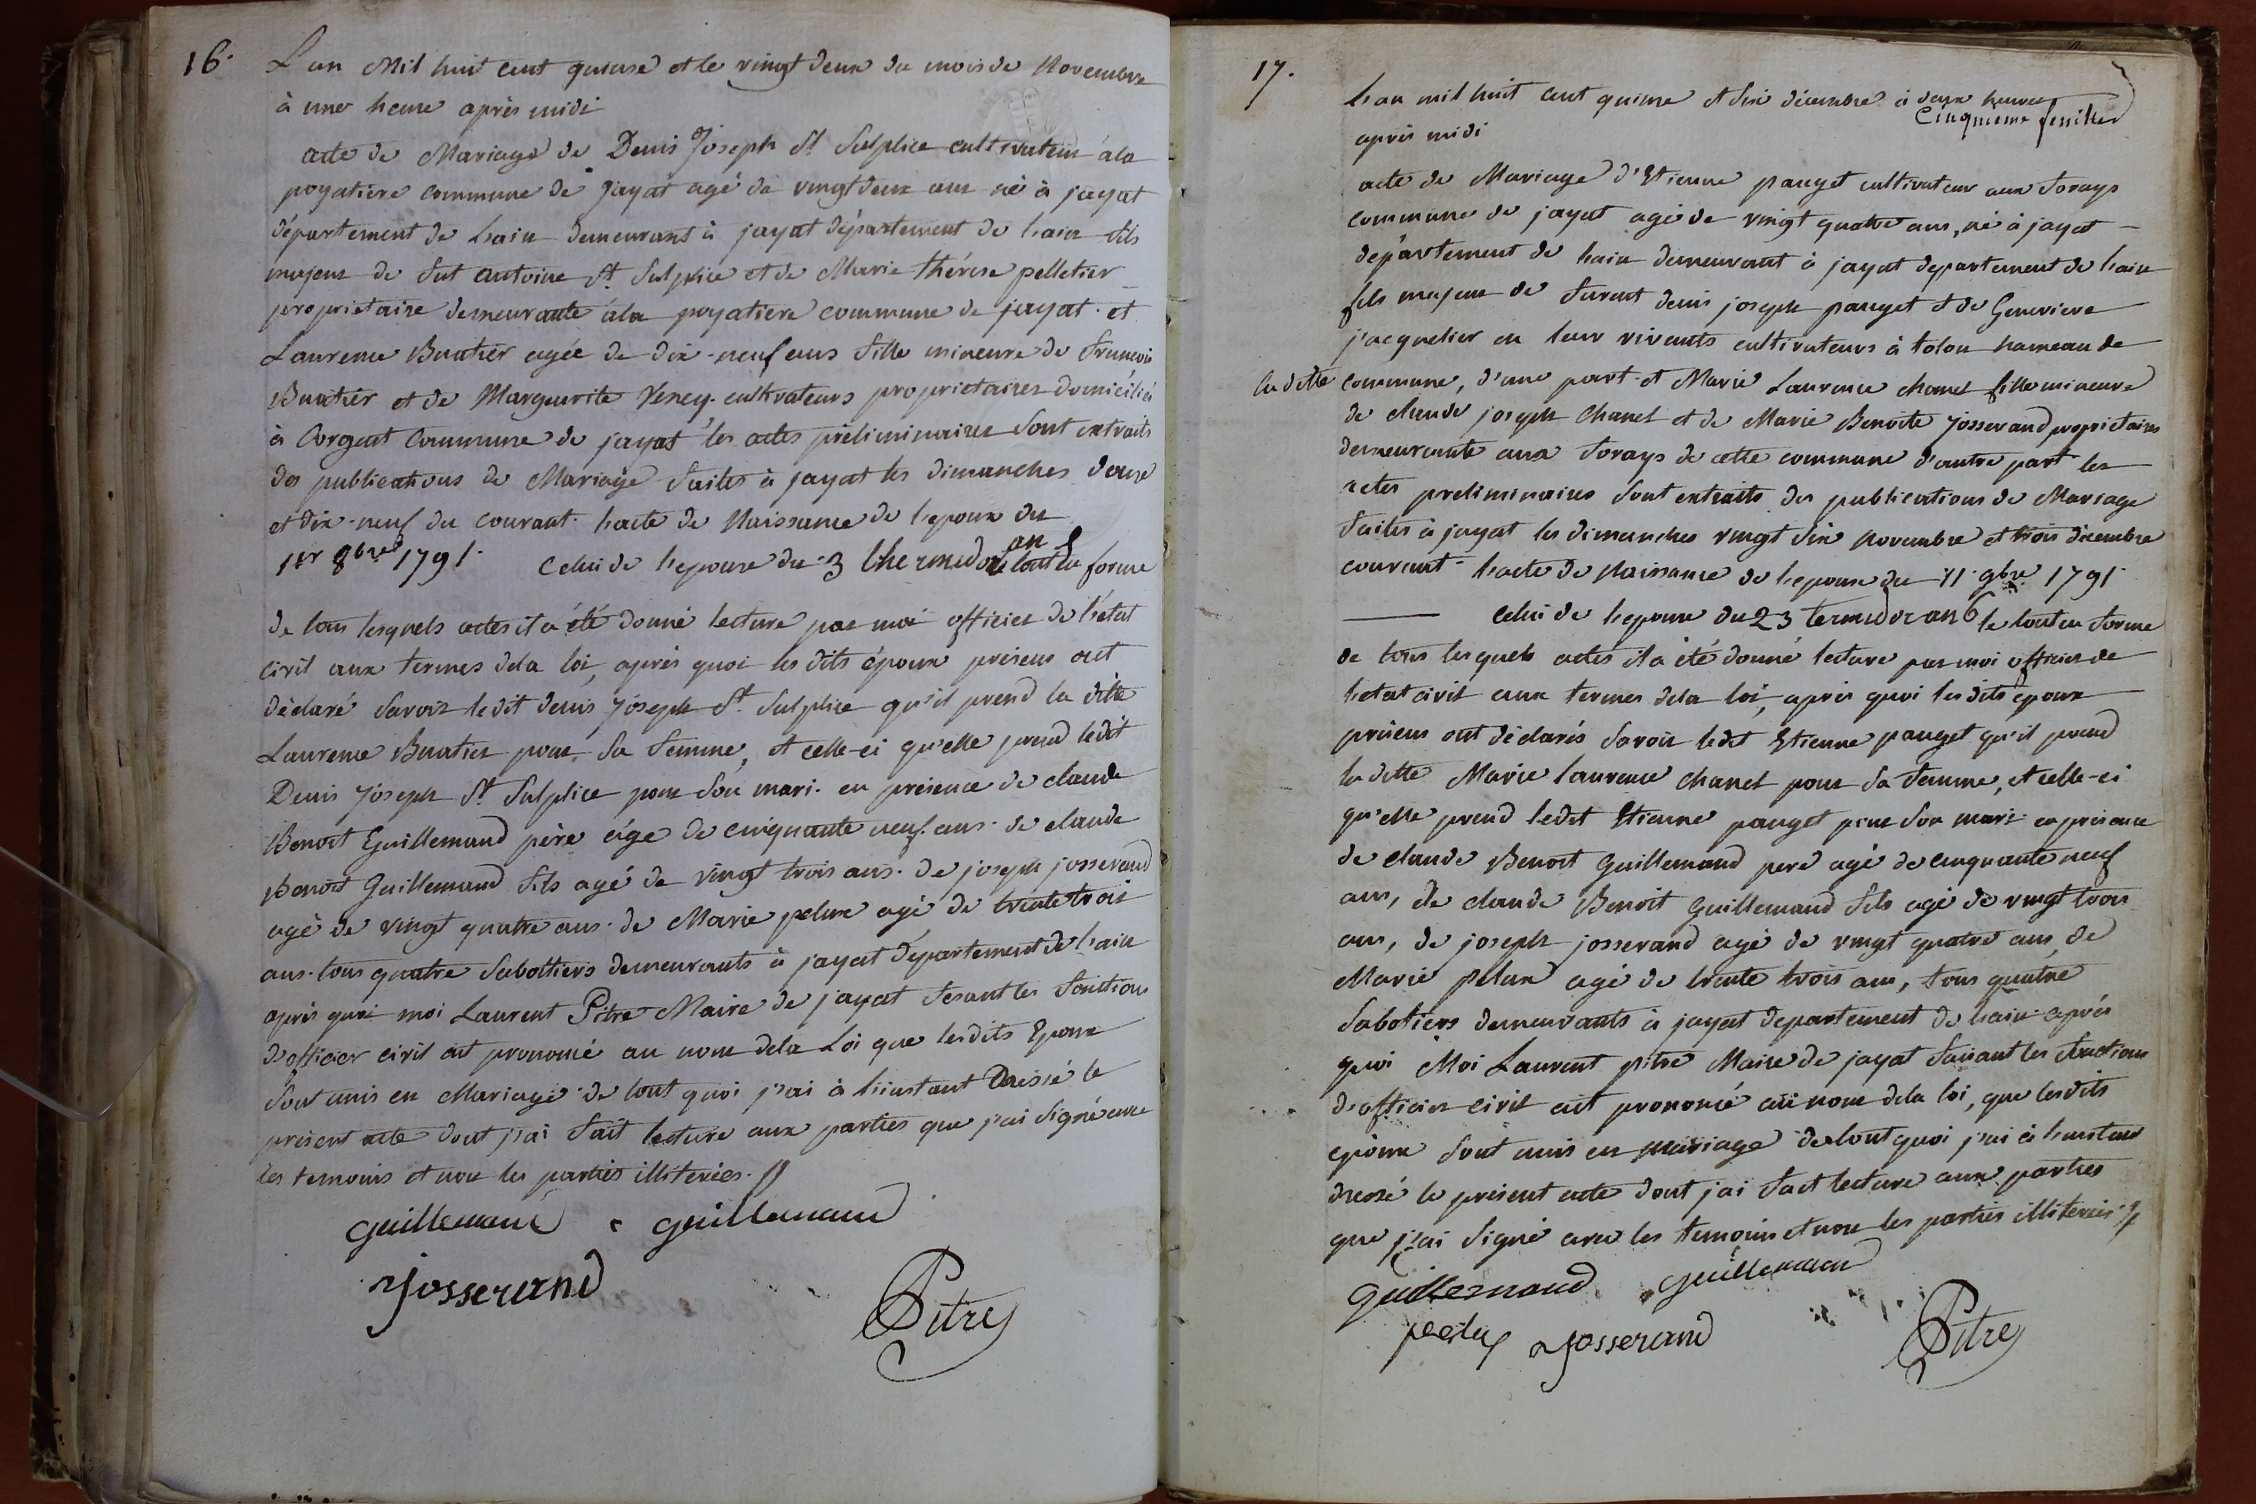 16.
L'an Mil huit cent quinze et le vingt deux du mois de Novembre
à une heure après midi
acte de Mariage de Denis Joseph St Sulplice cultivateur à la
poyatiere commune de Jayat agé de vingt deux ans né à jayat
département de Lain demeurant à jayat département de Lain fils
majeur de fut antoine St Sulplice et de Marie thérese pelletier
proprietaire demeurante à la poyatiere commune de jayat. et
Laurence Buatier agée de dix-neuf ans fille mineure de francois
Buatier et de Marguerite Veney cultivateurs proprietaires domiciliés
à Corgent Commune de jayat les actes préliminaires sont extraits
des publications de Mariage faites à jayat les dimanches douze
et dix-neuf du courant. Lacte de Naissance de lepoux du
1er 8bre 1791. Celui de lepouse du 3 thermidor an le tout en forme
de tous lesquels actes il a été donné lecture par moi officier de l'état
civil aux termes de la loi, après quoi les dits époux présens ont
déclaré savoir ledit denis joseph St. Sulplice qu'il prend la ditte
Laurence Buatier pour sa femme, et celle-ci qu'elle prend ledit
Denis joseph St Sulplice pour son mari. en présence de claude
Benoit Guillemaud père age de cinquante neuf ans. de claude
Benoit Guillemaud fils agé de vingt trois ans. de joseph josserand
agé de vingt quatre ans. de Marie pelux agé de trente trois
ans. tous quatre sabottiers demeurants à jayat département de Lain
après quoi moi Laurent Pitre Maire de jayat fesant les fonctions
d'officier civil ait prononcé au nom de la Loi que lesdits Epoux
sont unis en Mariage de tout quoi j'ai à linstant Dressé le
présent acte dont j'ai fait lecture aux parties que j'ai signé avec
les temoins et non les parties illiterées.
Guillemaud Guillemaud
Josserand
Pitre
17.
Cinquieme feuillet
Lan mil huit cent quinze et dix décembre à deux heures
après midi
acte de Mariage d'Etienne pauget cultivateur aux forays
commune de jayat agé de vingt quatre ans, né à jayat
département de Lain demeurant à jayat departement de Lain
fils majeur de furent denis joseph pauget et de Genevieve
jacquelier en leur vivants cultivateurs à tolou hameau de
la ditte commune, d'une part et Marie Laurence chanel fille mineure
de claude joseph Chanel et de Marie Benoite josserand proprietaires
demeurante aux forays de cette commune d'autre part les
actes preliminaires sont extraits des publications de Mariage
faites à jayat les dimanches vingt six Novembre et trois décembre
courant Lacte de Naissance de lepoux du 11 9bre 1791.
Celui de lepouse du 23 termidor an 6 le tout en forme
de tous lesquels actes il a été donné lecture par moi officier de
letat civil aux termes de la loi, après quoi les dits époux
présens ont déclarés savoir ledit Etienne pauget qu'il prend
la ditte Marie laurence Chanel pour sa femme, et celle-ci
qu'elle prend ledit Etienne pauget pour son mari en présence
de claude Benoit Guillemaud pere agé de cinquante neuf
ans, de claude Benoit Guillemaud fils agé de vingt trois
ans, de joseph josserand agé de vingt quatre ans, de
Marie Pelux agé de trente trois ans, tous quatre
sabotiers demeurants à jayat departement de Lain après
quoi Moi Laurent pitre Maire de jayat faisant les fonctions
d'officier civil ait prononcé au nom de la loi, que lesdits
epoux sont unis en mariage de tout quoi j'ai à linstant
dressé le présent acte dont j'ai fait lecture aux parties
que j'ai signé avec les temoins et non les parties illiterées
Guillemaud Guillemaud
Josserand
Pitre